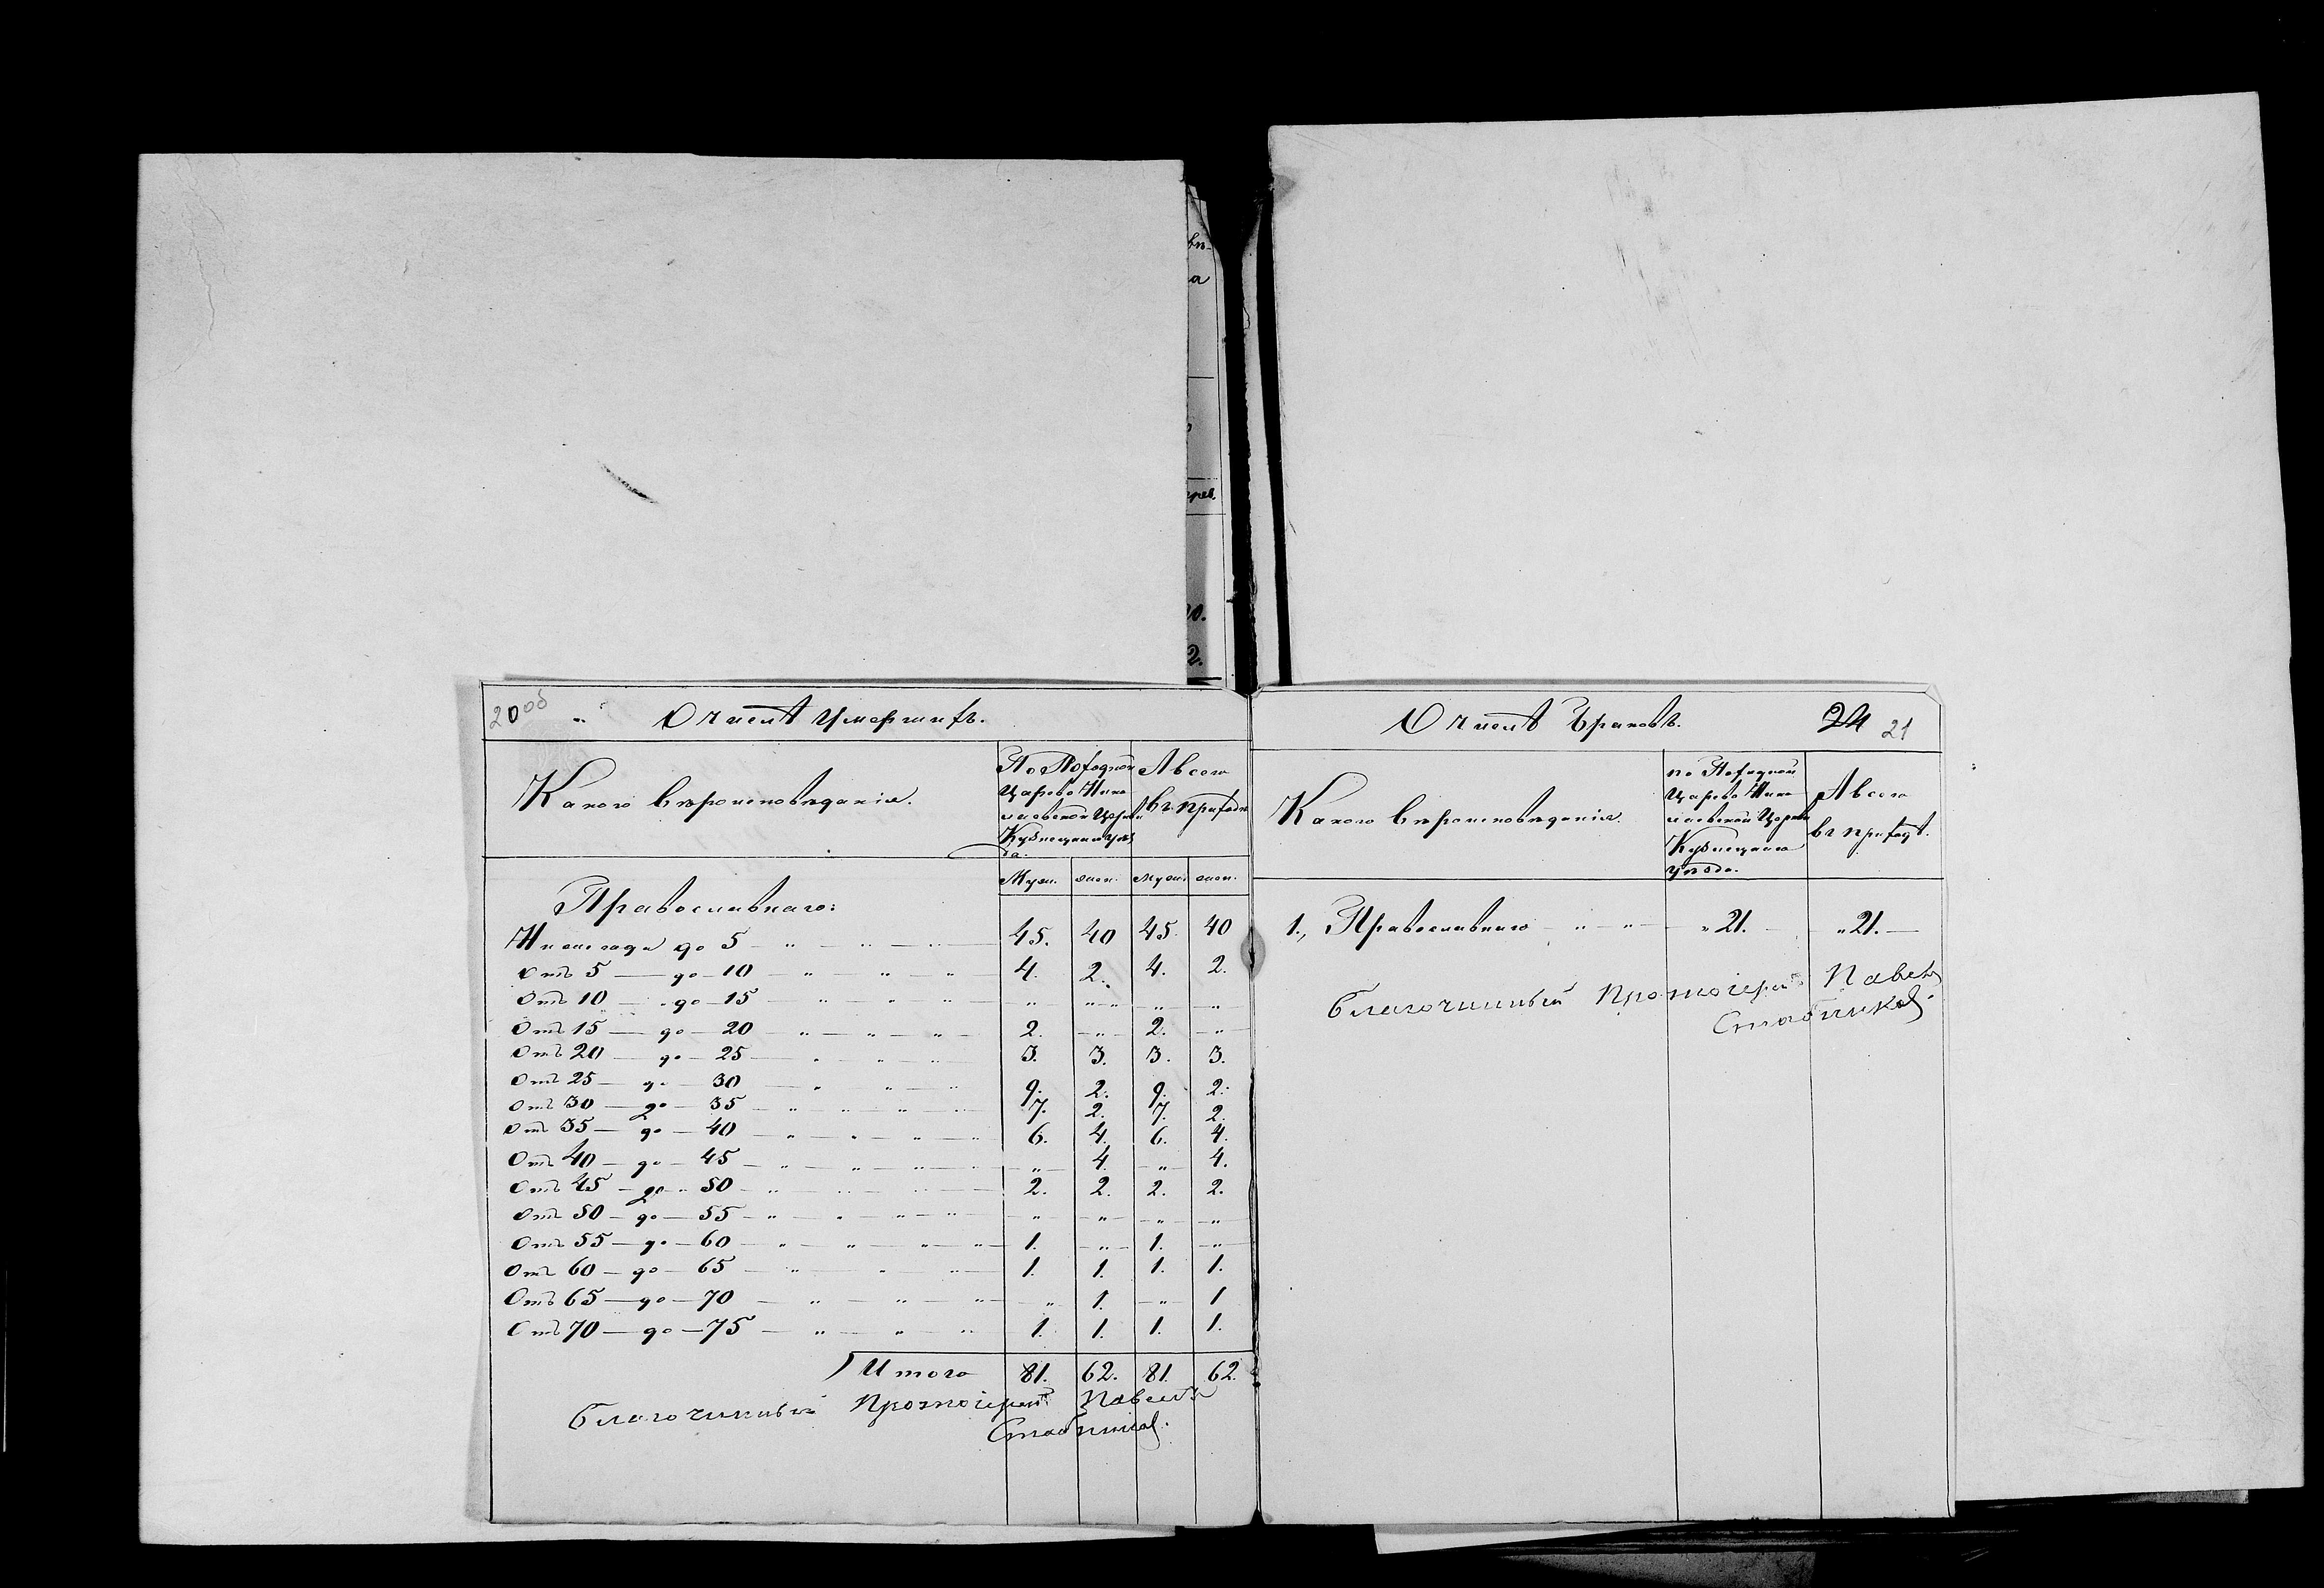 О числѣ Умершихъ.
Какого вѣроисповѣданія.
По Походной
Царево Нико
лаевской Церкви
Кузнецкаго Уѣз
да.
А всего
въ приходѣ
Муж. жен. Муж. жен.
Православнаго:
Ниже года до 5 — „ — „ — „ — 45. 40 45. 40
Отъ 5 — до — 10 — „ — „ — „ 4. 2. 4. 2.
Отъ 10 — до — 15 — „ — „ — „ „ „ „ „
Отъ 15 — до — 20 — „ — „ — „ 2. „ 2. „
Отъ 20 — до — 25 — „ — „ — „ 3. 3. 3. 3.
Отъ 25 — до — 30 — „ — „ — „ 9. 2. 9. 2.
Отъ 30 — до — 35 — „ — „ — „ — „ 7. 2. 7. 2.
Отъ 35 — до — 40 — „ — „ — „ — „ 6. 4. 6. 4.
Отъ 40 — до — 45 — „ — „ — „ — „ „ 4. „ 4.
Отъ 45 — до — 50 — „ — „ — „ — 2. 2. 2. 2.
Отъ 50 — до — 55 — „ — „ — „ — „ „ „ „ „
Отъ 55 — до — 60 — „ — „ — „ — „ 1. „ 1. „
Отъ 60 — до — 65 — „ — „ — „ 1. 1. 1. 1.
Отъ 65 — до — 70 — „ — „ — „ „ 1. „ 1
Отъ 70 — до — 75 — „ — „ — „ 1. 1. 1. 1.
Итого 81. 62. 81. 62.
Благочинный Протоіерей Павелъ
Стабниковъ.
О числѣ Браковъ. 24 21
Какого вѣроисповѣданія.
по Походной
Царево Нико
лаевской Церкви
Кузнецкаго
уѣзда.
А всего
въ приходѣ.
1., Православнаго — „ — „ — „ 21. — „ 21. —
Благочинный Протоіерей Павелъ
Стабниковъ.